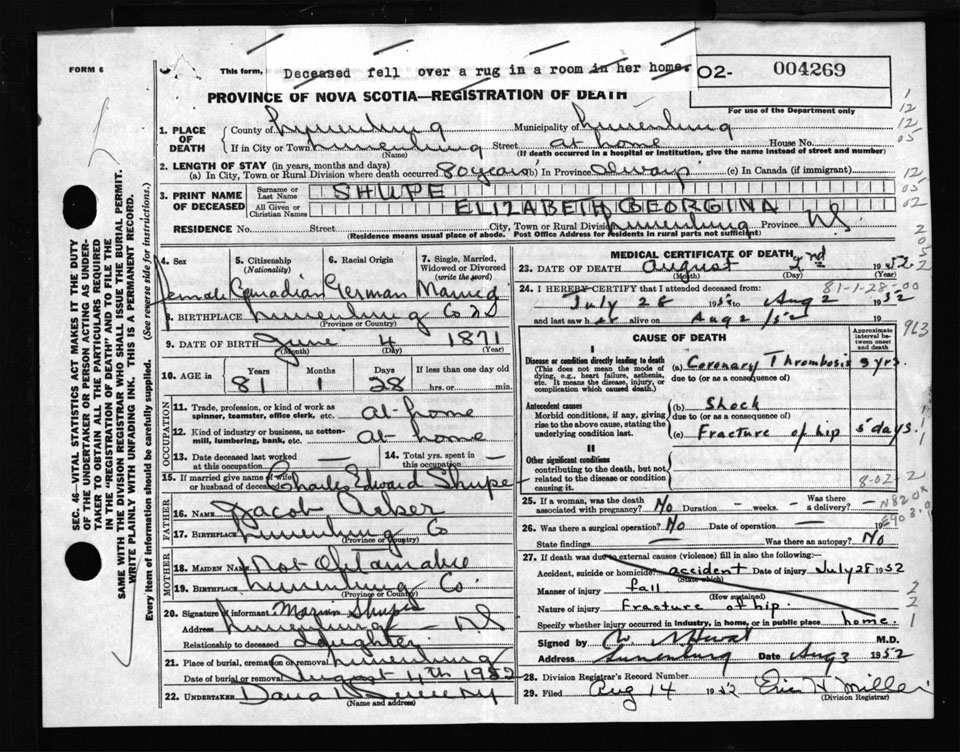 FORM 6
This form, Deceased fell over a rug in a room in her home.
02- 004269
For use of the Department only
PROVINCE OF NOVA SCOTIA—REGISTRATION OF DEATH
1. PLACE OF DEATH
County of Lunenburg Municipality of Lunenburg
If in City or Town Lunenburg (Name) Street at home House No.
(If death occurred in a hospital or institution, give the name instead of street and number)
2. LENGTH OF STAY (in years, months and days)
(a) In City, Town or Rural Division where death occurred 80 years (b) In Province always (c) In Canada (if immigrant)
3. PRINT NAME OF DECEASED
Surname or Last Name SHUPE
All Given or Christian Names ELIZABETH GEORGINA
RESIDENCE No. Street City, Town or Rural Division Lunenburg Province N.S.
(Residence means usual place of abode. Post Office Address for residents in rural parts not sufficient)
4. Sex female
5. Citizenship (Nationality) Canadian
6. Racial Origin German
7. Single, Married, Widowed or Divorced (write the word) Married
8. BIRTHPLACE Lunenburg Co NS
(Province or Country)
9. DATE OF BIRTH June 4 1871
(Month) (Day) (Year)
10. AGE in Years 81 Months 1 Days 28 If less than one day old hrs. or min.
OCCUPATION
11. Trade, profession, or kind of work as spinner, teamster, office clerk, etc. at-home
12. Kind of industry or business, as cotton-mill, lumbering, bank, etc. at home
13. Date deceased last worked at this occupation —
14. Total yrs. spent in this occupation —
15. If married give name of wife or husband of deceased Charles Edward Shupe
FATHER
16. Name Jacob
17. Birthplace Lunenburg Co
(Province or Country)
MOTHER
18. MAIDEN NAME Not Obtainable
19. BIRTHPLACE Lunenburg Co.
(Province or Country)
20. Signature of informant Shupe
Address Lunenburg — N.S
Relationship to deceased daughter
21. Place of burial, cremation or removal Lunenburg
Date of burial or removal August 4th 1952
22. UNDERTAKER
(Name and address)
MEDICAL CERTIFICATE OF DEATH
23. DATE OF DEATH August 2nd 1952
(Month) (Day)
24. I HEREBY CERTIFY that I attended deceased from: 81-1-28-00
July 28 1952 to Aug 2 1952
and last saw her alive on Aug 2 /52
CAUSE OF DEATH
Approximate interval between onset and death
I
Disease or condition directly leading to death
(This does not mean the mode of dying, e.g., heart failure, asthenia, etc. It means the disease, injury, or complication which caused death.)
(a) Coronary Thrombosis yrs.
due to (or as a consequence of)
Antecedent causes
Morbid conditions, if any, giving rise to the above cause, stating the underlying condition last.
(b) Shock
due to (or as a consequence of)
(c) Fracture of hip 5 days.
II
Other significant conditions
contributing to the death, but not related to the disease or condition causing it.
8-02-2
25. If a woman, was the death associated with pregnancy? No Duration — weeks. Was there a delivery? —
26. Was there a surgical operation? No Date of operation — 19
State findings — Was there an autopsy? No
27. If death was due to external causes (violence) fill in also the following:—
Accident, suicide or homicide? accident Date of injury July 28 1952
(State which)
Manner of injury fall
(How sustained)
Nature of injury Fracture of hip.
Specify whether injury occurred in industry, in home, or in public place home.
Signed by M.D.
Address Lunenburg Date Aug 3 1952
28. Division Registrar's Record Number
29. Filed Aug 14 1952 Miller
(Division Registrar)
SEC. 46—VITAL STATISTICS ACT MAKES IT THE DUTY
OF THE UNDERTAKER OR PERSON ACTING AS UNDER-
TAKER TO OBTAIN ALL THE PARTICULARS REQUIRED
IN THE "REGISTRATION OF DEATH" AND TO FILE THE
SAME WITH THE DIVISION REGISTRAR WHO SHALL ISSUE THE BURIAL PERMIT.
WRITE PLAINLY WITH UNFADING INK. THIS IS A PERMANENT RECORD.
Every item of information should be carefully supplied. (See reverse side for instructions.)